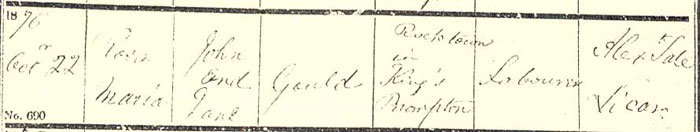 1876
Octr 22
No. 690
Rosa
Maria
John
and
Jane
Gould
Rocks town
in
King's
Brompton
Labourer
Alex Tate
Vicar